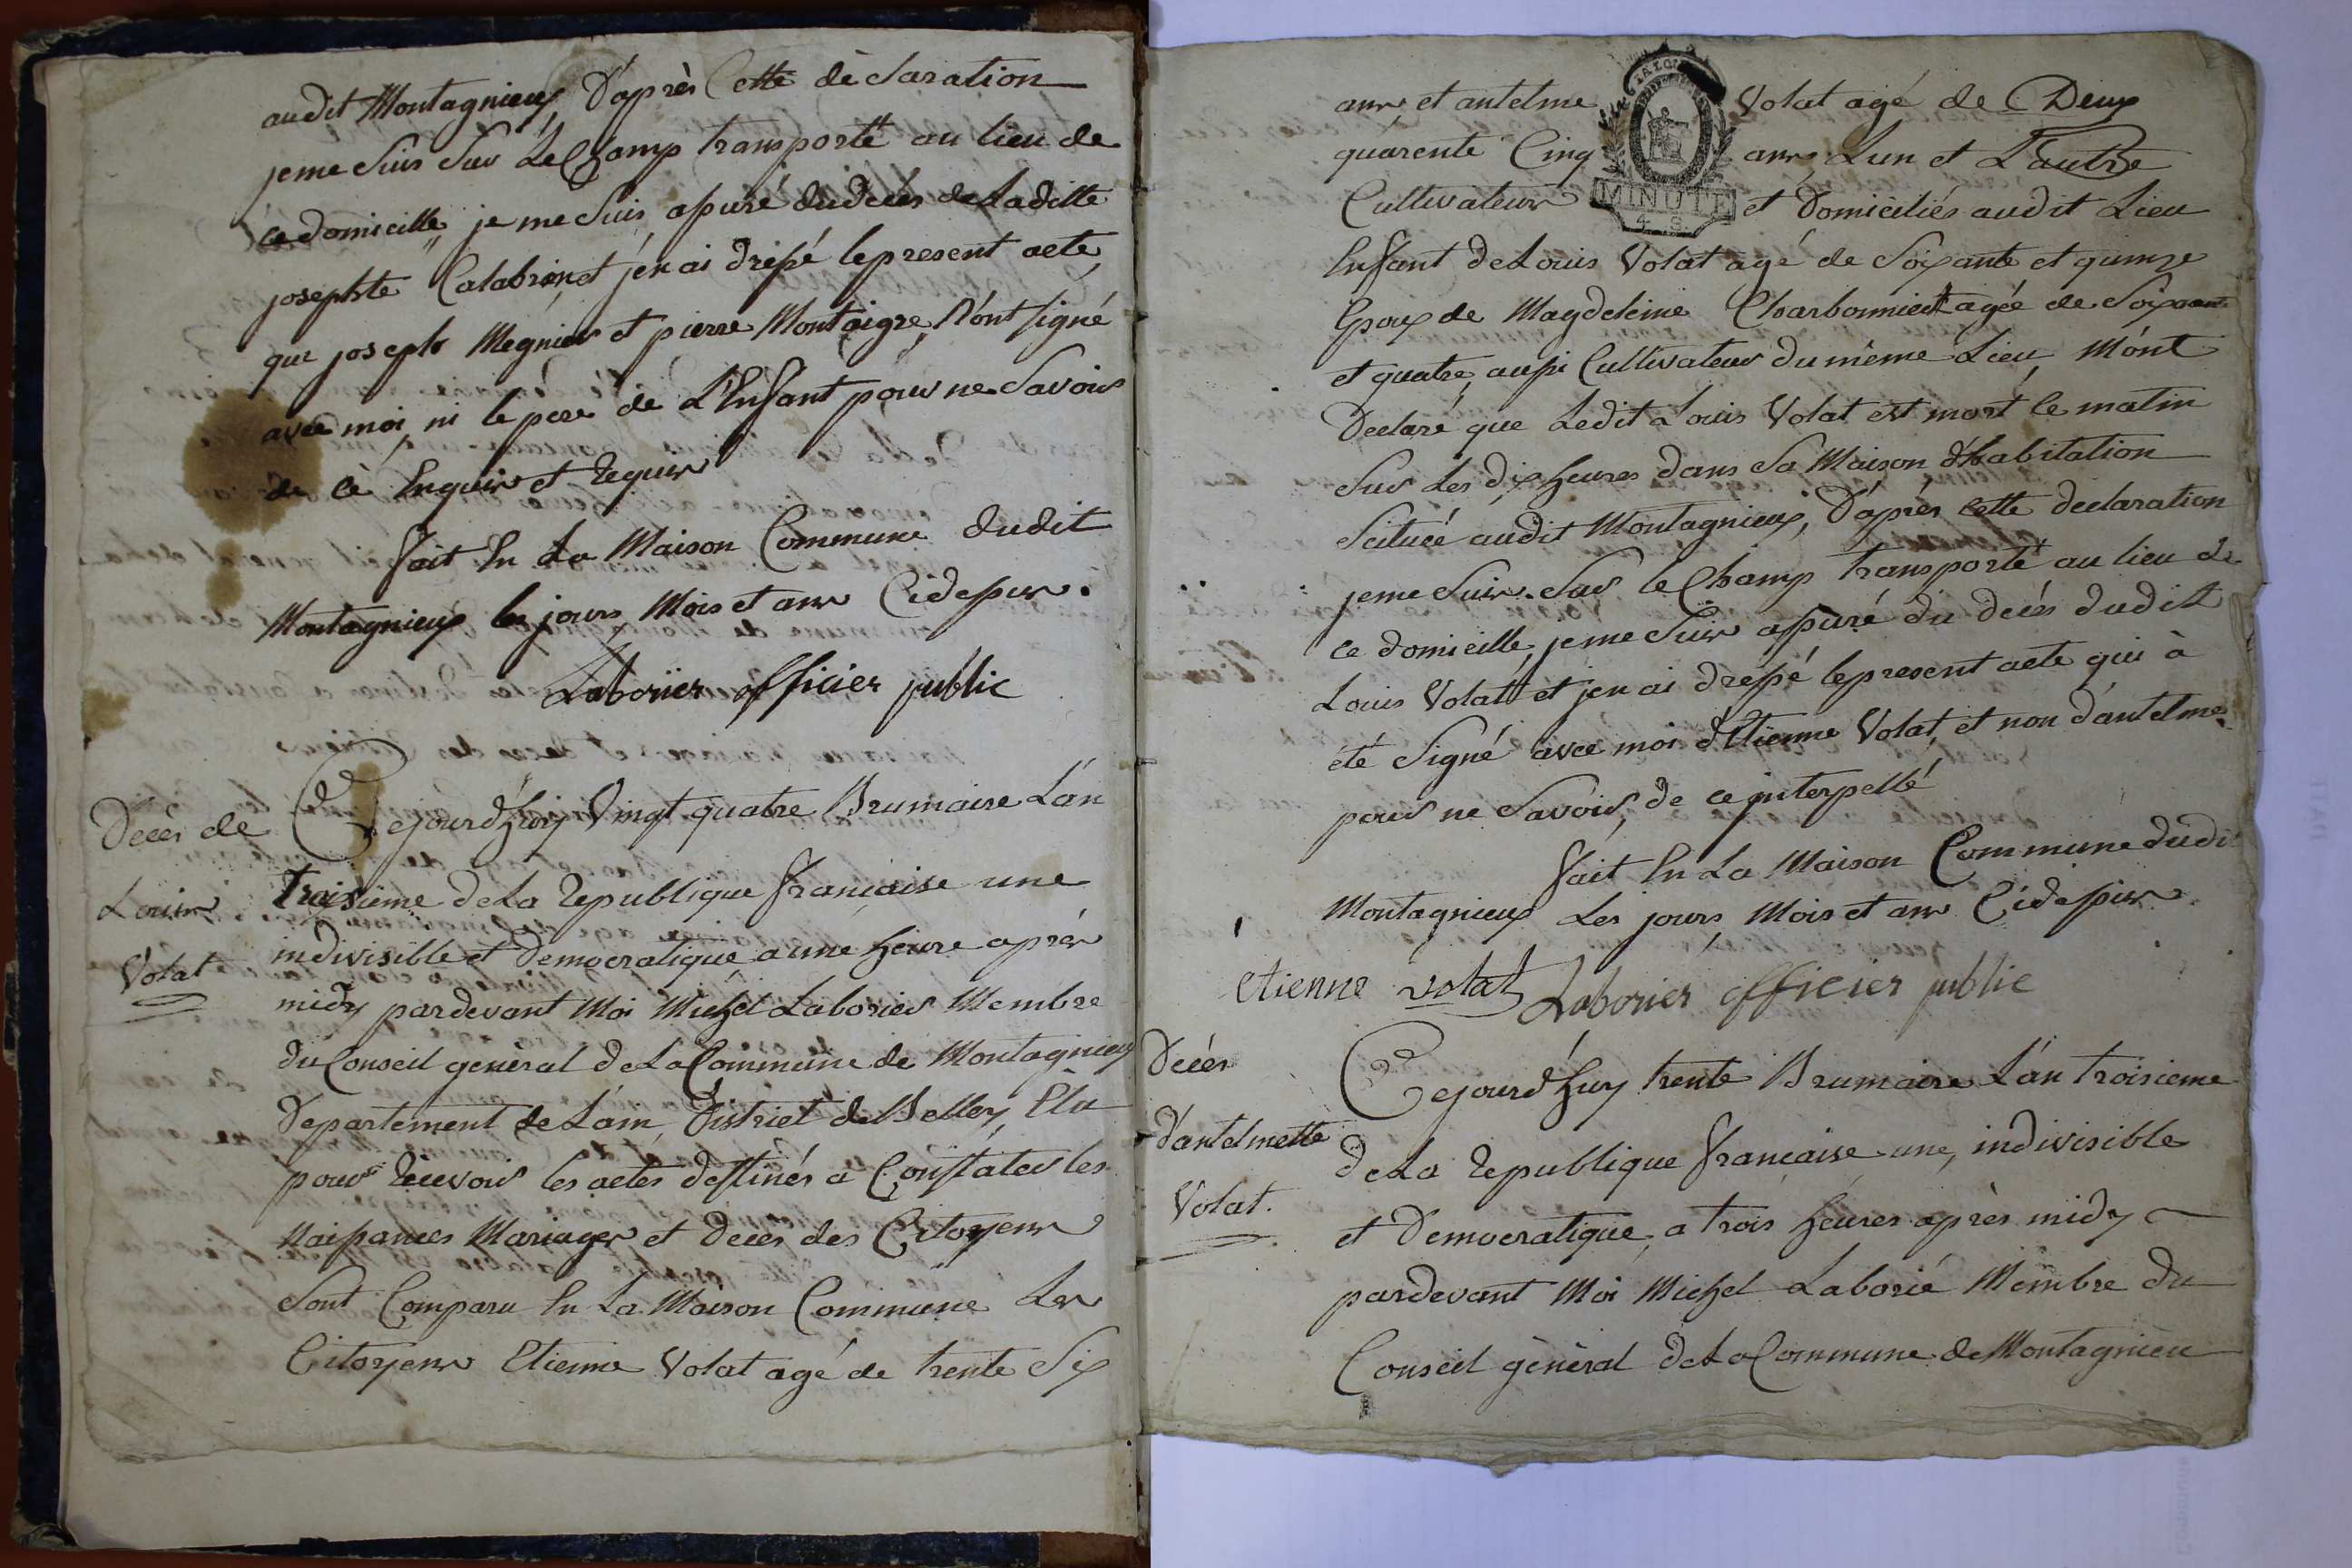 audit Montagnieux, D'après Cette déclaration
je me Suis Sur Le Champ transporté au lieu de
ce domicille, je me Suis assuré du decès de Laditte
josephte Calabrin, et j'en ai dressé le present acte,
que joseph Megnier et pierre Montaigre, N'ont signé
avec moi, ni le pere de L'Enfant pour ne Savoir
de cè Enquis et Requis
fait En La Maison Commune dudit
Montagnieux les jours, Mois et ans Cidessus.
Laborier officier public
Decès de
Louis
Volat
Cejourd'huy Vingt quatre Brumaire L'an
troisieme de La Republique francaise une
indivisible et Democratique a une heure après
midy pardevant Moi Michel Laborier Membre
du Conseil genéral de La Commune de Montagnieux
Departement de Lain, District de Belley, Elu
pour Recevoir les actes destinés a Constater les
Naissances Mariages et decès des Citoyens
Sont Comparu En La Maison Commune Les
Citoyens Etienne Volat agé de trente Six
ans, et antelme Volat agé de Deux
quarente Cinq ans, L'un et L'autre
Cultivateurs et Domiciliés audit Lieu
MINUTE
Enfant de Louis Volat agé de Soixante et quinze
Epoux de Magdeleine Charbonnier agée de Soixante
et quatre, aussi Cultivateur du même Lieu, M'ont
Declaré que Ledit Louis Volat est mort ce matin
Sur Les dix heures dans Sa Maison d'habitation
Scituée audit Montagnieux, D'après cette declaration
je me Suis Sur le Champ transporté au lieu de
ce domicille, je me Suis assuré du decés dudit
Louis Volat et j'en ai dressé le present acte qui à
été Signé avec moi d'Etienne Volat, et non d'antelme
pour ne Savoir, de ce interpellé
fait En La Maison Commune dudit
Montagnieux Les jours, Mois et ans Cidessus
etienne volat Laborier officier public
Decés
D'antelmette
Volat.
Cejourd'huy trente Brumaire L'an troisieme
de La Republique francaise une, indivisible
et Democratique, a trois heures après midy
pardevant Moi Michel Laborié Membre du
Conseil gènèral de La Commune de Montagnieu